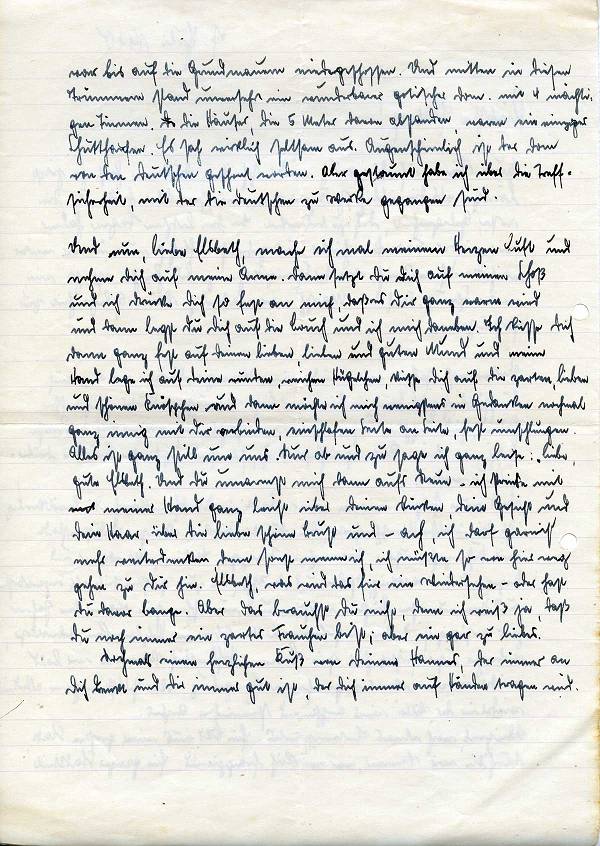 war bis auf die Grundmauern niedergeschossen. Und mitten in diesen
Trümmern stand unversehrt ein wunderbarer gotischer Dom. mit 4 mächti-
gen Zinnen. Die Häuser, die 5 Meter davon abstanden, waren ein einziger
Schutthaufen. Es sah wirklich seltsam aus. Augenscheinlich ist der Dom
von den Deutschen geschont worden. Aber gestaunt habe ich über die Treff-
sicherheit, mit der die Deutschen zu Werke gegangen sind.
Und nun, liebe Elsbeth, mache ich mal meinem Herzen Luft und
nehme Dich auf meine Arme. Dann setzt Du Dich auf meinen Schoß
und ich drücke Dich so fest an mich, daß es Dir ganz warm wird
und dann legst Du Dich auf die Couch und ich mich daneben. Ich küsse Dich
dann ganz fest auf Deinen lieben lieben und guten Mund und meine
Hand lege ich auf Deine runden, weichen Hügelchen, küsse Dich auf die zarten, lieben
und schönen und dann möchte ich mich wenigstens in Gedanken nochmal
ganz innig mit Dir verbinden, einschlafen Seite an Seite, fest umschlungen.
Alles ist ganz still um uns. Nur ab und zu sage ich ganz leise: „liebe,
gute Elsbeth. Und Du umarmst mich dann aufs Neue. – ich streiche mit
meiner Hand ganz leicht über Deinen Rücken, Dein Gesicht und
Dein Haar, über Die liebe schöne Brust und – ach, ich darf garnicht
mehr weiterdenken denn sonst meine ich, ich müßte so von hier weg
gehen zu Dir hin. Elsbeth, was wird das für ein Wiedersehen – oder hast
Du davor bange. Aber das brauchst Du nicht, denn ich weiß ja, daß
Du noch immer ein zartes Frauchen bist; aber ein gar zu liebes.
Nochmals einen herzlichen Kuß von Deinem Hannes, der immer an
Dich denkt und Dir immer gut ist, der Dich immer auf Händen tragen wird.